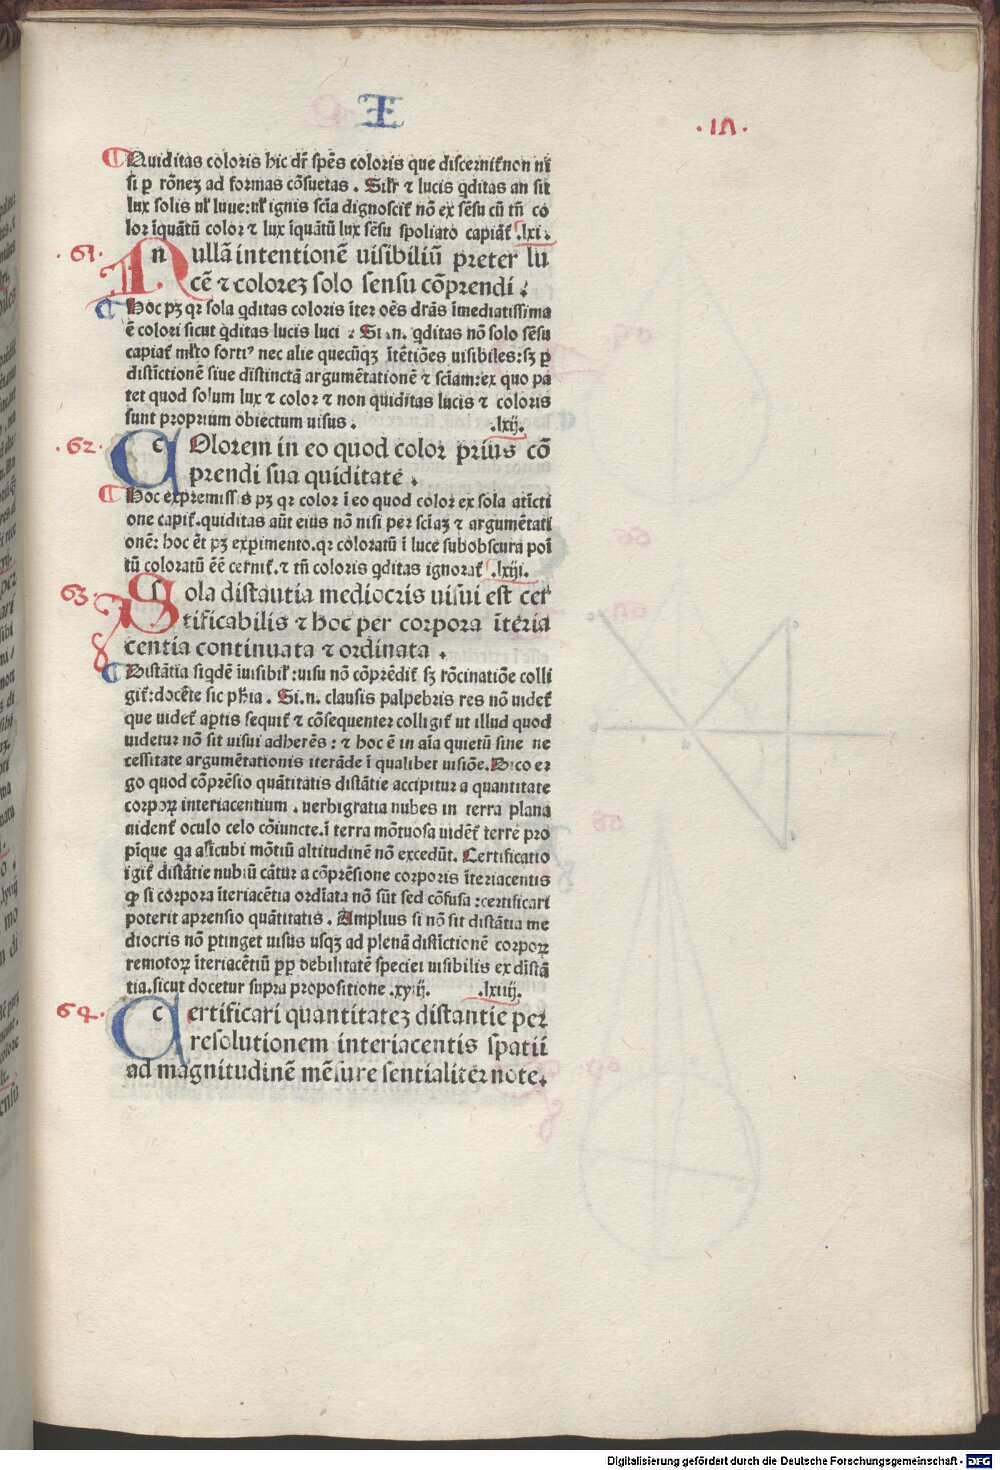 I
·17·
Quiditas coloris hic dr̄ sp̄es coloris que discernit̄ non ni
si ꝑ rōnez ad formas cōsuetas. Sil̄r ⁊ lucis q̄ditas an sit
lux solis ul̄ lune: ul̄ ignis scīa dignoscit̄ nō ex sēsu cū tn̄ co
lor īquātū color ⁊ lux īquātū lux sēsu spoliato capiāt̄ .lxi.
·61· Nullā intentionē uisibiliū preter lu
cē ⁊ colorez solo sensu cōprendi.
Hoc pz qr sola q̄ditas coloris īter oēs dr̄as īmediatissima
ē colori sicut q̄ditas lucis luci. Si.n. q̄ditas nō solo sēsu
capiat̄ ml̄to forti⁹ nec alie quecūqz ītētiōes uisibiles: sz ꝑ
distīctionē siue distinctā argumētationē ⁊ scīam: ex quo pa
tet quod solum lux ⁊ color ⁊ non quiditas lucis ⁊ coloris
sunt proprium obiectum uisus. .lxij.
·62· COlorem in eo quod color prius cō
prendi sua quiditate.
Hoc ex premissis pz qr color ī eo quod color ex sola atīcti
one capit̄. quiditas aūt eius nō nisi per scīaz ⁊ argumētati
onē: hoc ēt pz exprimento. qr coloratū ī luce subobscura poī
tū coloratū ēē cernit̄. ⁊ tn̄ coloris q̄ditas ignorat̄ .lxiij.
63· Sola distantia mediocris uisui est cer
tificabilis ⁊ hoc per corpora īteria
centia continuata ⁊ ordinata.
Distātia siq̄dē īuisibil̄: uisu nō cōprēdit̄ sz rōcinatiōe colli
git̄: docēte sic ph̄ia. Si.n. clausis palpebris res nō uidet̄
que uidet̄ aꝑtis sequit̄ ⁊ cōsequenter colligit̄ ut illud quod
uidetur nō sit uisui adherēs: ⁊ hoc ē in aīa quietū sine ne
cessitate argumētationis iterāde ī qualibet uisiōe. Dico er
go quod cōprēsio quātitatis distātie accipitur a quantitate
corpoꝝ interiacentium. uerbigratia nubes in terra plana
uident̄ oculo celo cōiuncte. ī terra mōtuosa uidēt̄ terre pro
pīque qa alicubi mōtiū altitudinē nō excedūt. Certificatio
īgit̄ distātie nubiū cātur a cōprēsione corporis īteriacentis
ꝙ si corpora īteriacētia ordīata nō sūt sed cōfusa: certificari
poterit aprensio quātitatis. Amplius si nō sit distātia me
diocris nō ꝑtinget uisus usqz ad plenā distīctionē corpoꝝ
remotoꝝ īteriacētiū ꝓꝑ debilitatē speciei uisibilis ex distā
tia. sicut docetur supra propositione .xviij. .lxiiij.
64· Certificari quantitatez distantie per
resolutionem interiacentis spatii
ad magnitudinē mēsure sentialiter note.
Digitalisierung gefördert durch die Deutsche Forschungsgemeinschaft - DFG